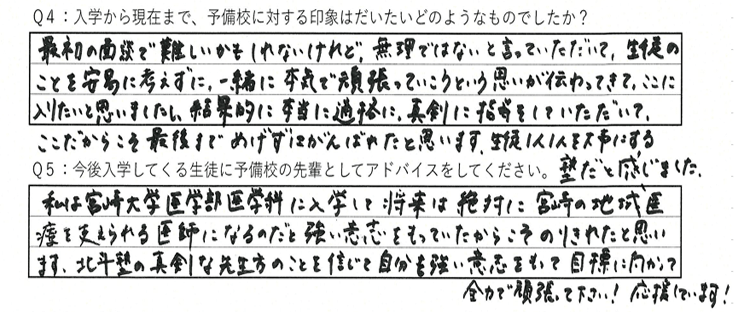 Q4：入学から現在まで、予備校に対する印象はだいたいどのようなものでしたか？
最初の面談で難しいかもしれないけれど、無理ではないと言っていただいて、生徒の
ことを安易に考えずに、一緒に本気で頑張っていこうという思いが伝わってきて、ここに
入りたいと思いましたし、結果的に本当に適格に、真剣に指導をしていただいて、
ここだからこそ最後までめげずにがんばれたと思います。生徒1人1人を大事にする
塾だと感じました。
Q5：今後入学してくる生徒に予備校の先輩としてアドバイスをしてください。
私は宮崎大学医学部医学科に入学して将来は絶対に宮崎の地域医
療を支えられる医師になるのだと強い意志をもっていたからこそのりきれたと思い
ます。北斗塾の真剣な先生方のことを信じて自分も強い意志をもって目標に向かって
全力で頑張って下さい！応援しています！